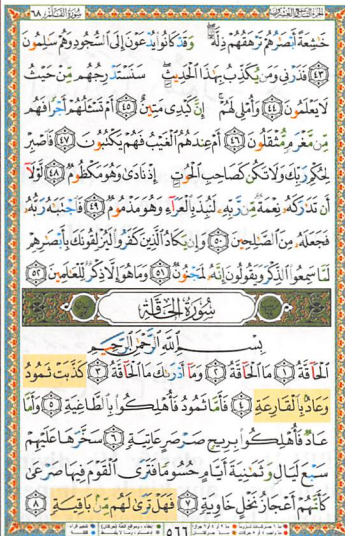 الجزء التاسع والعشرون سورة القلم ٦٨
خَٰشِعَةً أَبْصَٰرُهُمْ تَرْهَقُهُمْ ذِلَّةٌ ۖ وَقَدْ كَانُوا۟ يُدْعَوْنَ إِلَى ٱلسُّجُودِ وَهُمْ سَٰلِمُونَ
٤٣ فَذَرْنِى وَمَن يُكَذِّبُ بِهَٰذَا ٱلْحَدِيثِ ۖ سَنَسْتَدْرِجُهُم مِّنْ حَيْثُ
لَا يَعْلَمُونَ ٤٤ وَأُمْلِى لَهُمْ ۚ إِنَّ كَيْدِى مَتِينٌ ٤٥ أَمْ تَسْـَٔلُهُمْ أَجْرًا فَهُم
مِّن مَّغْرَمٍ مُّثْقَلُونَ ٤٦ أَمْ عِندَهُمُ ٱلْغَيْبُ فَهُمْ يَكْتُبُونَ ٤٧ فَٱصْبِرْ
لِحُكْمِ رَبِّكَ وَلَا تَكُن كَصَاحِبِ ٱلْحُوتِ إِذْ نَادَىٰ وَهُوَ مَكْظُومٌ ٤٨ لَّوْلَآ
أَن تَدَٰرَكَهُۥ نِعْمَةٌ مِّن رَّبِّهِۦ لَنُبِذَ بِٱلْعَرَآءِ وَهُوَ مَذْمُومٌ ٤٩ فَٱجْتَبَٰهُ رَبُّهُۥ
فَجَعَلَهُۥ مِنَ ٱلصَّٰلِحِينَ ٥٠ وَإِن يَكَادُ ٱلَّذِينَ كَفَرُوا۟ لَيُزْلِقُونَكَ بِأَبْصَٰرِهِمْ
لَمَّا سَمِعُوا۟ ٱلذِّكْرَ وَيَقُولُونَ إِنَّهُۥ لَمَجْنُونٌ ٥١ وَمَا هُوَ إِلَّا ذِكْرٌ لِّلْعَٰلَمِينَ ٥٢
سُورَةُ الحَاقَّة
بِسْمِ ٱللَّهِ ٱلرَّحْمَٰنِ ٱلرَّحِيمِ
ٱلْحَآقَّةُ ١ مَا ٱلْحَآقَّةُ ٢ وَمَآ أَدْرَىٰكَ مَا ٱلْحَآقَّةُ ٣ كَذَّبَتْ ثَمُودُ
وَعَادٌۢ بِٱلْقَارِعَةِ ٤ فَأَمَّا ثَمُودُ فَأُهْلِكُوا۟ بِٱلطَّاغِيَةِ ٥ وَأَمَّا
عَادٌ فَأُهْلِكُوا۟ بِرِيحٍ صَرْصَرٍ عَاتِيَةٍ ٦ سَخَّرَهَا عَلَيْهِمْ
سَبْعَ لَيَالٍ وَثَمَٰنِيَةَ أَيَّامٍ حُسُومًا فَتَرَى ٱلْقَوْمَ فِيهَا صَرْعَىٰ
كَأَنَّهُمْ أَعْجَازُ نَخْلٍ خَاوِيَةٍ ٧ فَهَلْ تَرَىٰ لَهُم مِّنۢ بَاقِيَةٍ ٨
٥٦٦